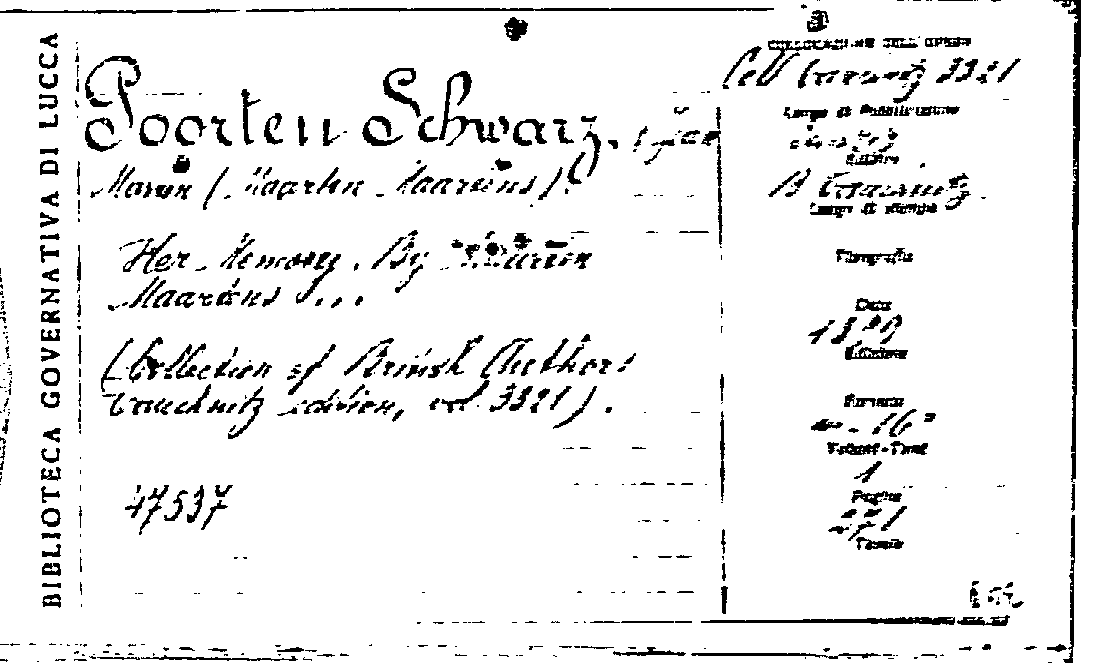 BIBLIOTECA GOVERNATIVA DI LUCCA
Poorten Schwarz,
Marius (Maarten Maartens).
Her Memory. By Maarten
Maartens ...
(Collection of British Authors
Tauchnitz edition, vol. 3321).
47537
COLLOCAZIONE DELL'OPERA
Coll Tauchnitz 3321
Luogo di Pubblicazione
Editore
B Tauchnitz
Luogo di stampa
Tipografia
Data
Edizione
Formato
in-16°
Volumi-Tomi
1
Pagine
271
Tavole